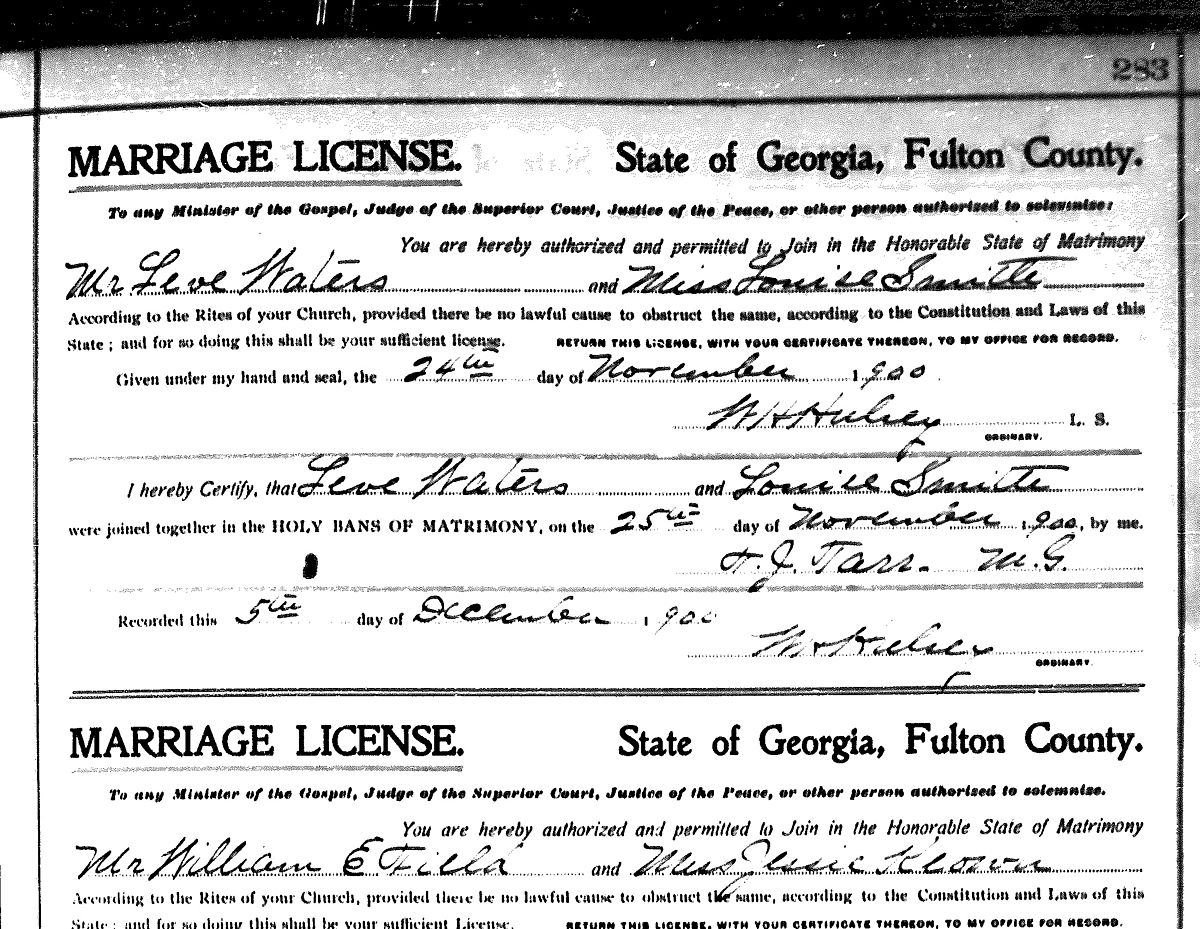 283
MARRIAGE LICENSE. State of Georgia, Fulton County.
To any Minister of the Gospel, Judge of the Superior Court, Justice of the Peace, or other person authorized to solemnize:
You are hereby authorized and permitted to Join in the Honorable State of Matrimony
Mr Leve Waters and Miss Louise Smith
According to the Rites of your Church, provided there be no lawful cause to obstruct the same, according to the Constitution and Laws of this
State; and for so doing this shall be your sufficient license. RETURN THIS LICENSE, WITH YOUR CERTIFICATE THEREON, TO MY OFFICE FOR RECORD.
Given under my hand and seal, the 24th day of November 1900
W H Hulsey L. S.
ORDINARY.
I hereby Certify, that Leve Waters and Louise Smith
were joined together in the HOLY BANS OF MATRIMONY, on the 25th day of November 1900, by me.
J. Tarr. M.G.
Recorded this 5th day of December 1900
W H Hulsey
ORDINARY.
MARRIAGE LICENSE. State of Georgia, Fulton County.
To any Minister of the Gospel, Judge of the Superior Court, Justice of the Peace, or other person authorized to solemnize.
You are hereby authorized and permitted to Join in the Honorable State of Matrimony
Mr William E Field and Miss Jessie Keown
According to the Rites of your Church, provided there be no lawful cause to obstruct the same, according to the Constitution and Laws of this
State; and for so doing this shall be your sufficient License. RETURN THIS LICENSE, WITH YOUR CERTIFICATE THEREON, TO MY OFFICE FOR RECORD.